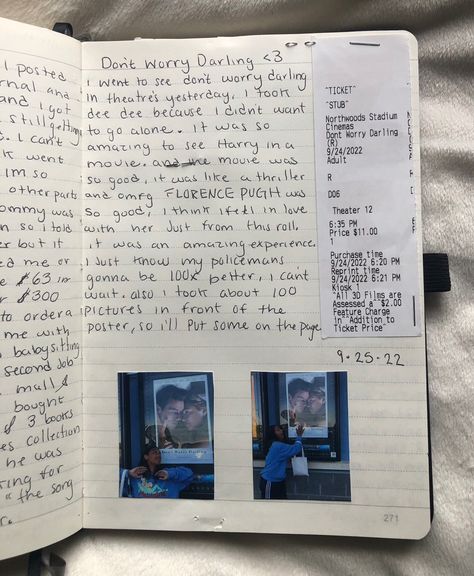 I posted
rnal and
and I got
still getting
d. I can't
k went
I'm so
other parts
ommy was
n so I told
er but it
ed me or
e $63 in
r $300
to order a
me with
babysitting
second job
mall &
bought
& 3 books
es collection
he was
ring for
"the song
r.
Don't Worry Darling <3
I went to see don't worry darling
in theatres yesterday, I took
dee dee because I didn't want
to go alone. it was so
amazing to see Harry in a
movie. and the movie was
so good, it was like a thriller
and omfg FLORENCE PUGH was
so good, I think I fell in love
with her Just from this roll.
it was an amazing experience.
I Just know my policemans
gonna be 100x better, I can't
wait. also I took about 100
pictures in front of the
poster, so i'll put some on the page
"TICKET"
"STUB"
Northwoods Stadium
Cinemas
Dont Worry Darling
(R)
9/24/2022
Adult
R
D06
Theater 12
6:35 PM
Price $11.00
1
Purchase time
9/24/2022 6:20 PM
Reprint time
9/24/2022 6:21 PM
Kiosk 1
"All 3D Films are
Assessed a "$2.00
Feature Charge
in "Addition to
Ticket Price"
9.25.22
271